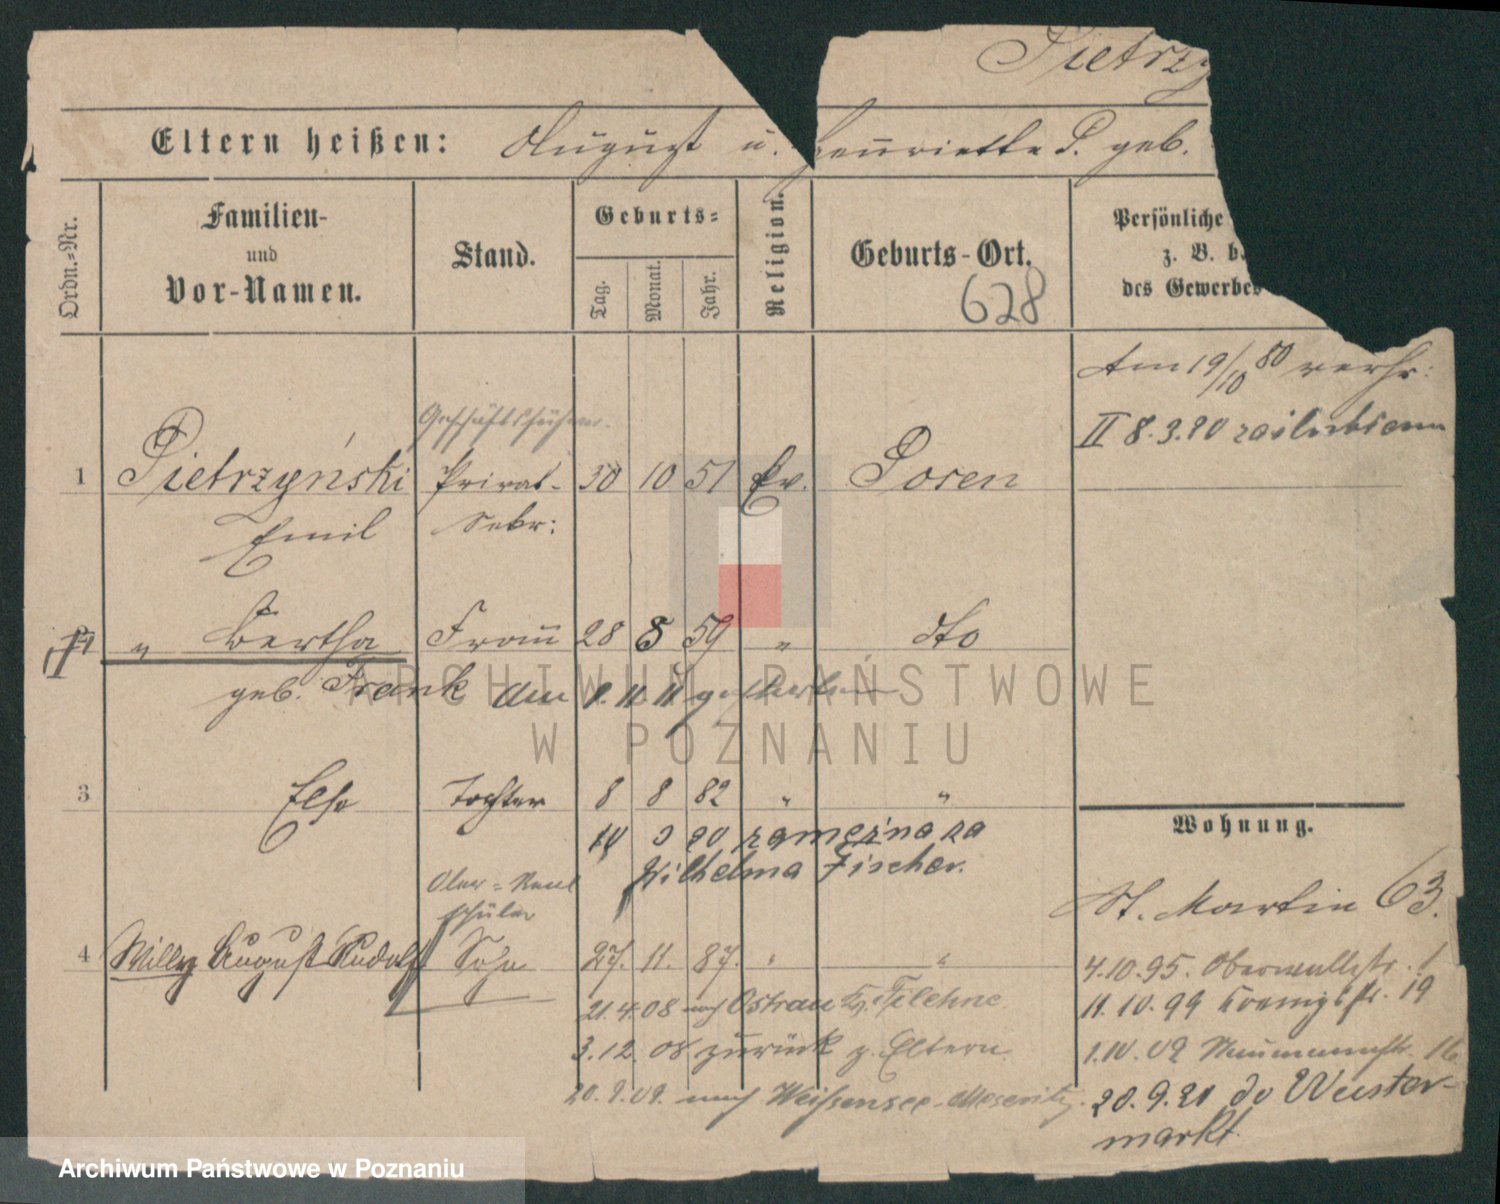 Pietrzy
Eltern heißen: August u. Henriette P. geb.
Ordn.=Nr.
Familien-
und
Vor-Namen.
Stand.
Geburts=
Tag.
Monat.
Jahr.
Religion.
Geburts-Ort.
628
Persönliche
z. B. b.
des Gewerbes
Am 19/10 80 verh:
II 8.3.20
Geschäftsführer.
1 Pietrzyński Privat- 30 10 51 Ev. Posen
Emil Sekr:
2 " Bertha Frau 28 8 59 " dto
geb. Frank am 9. 11. 11 gestorben
3 Else Tochter 8 8 82 " "
14 3 20 zamężna za
Wilhelma Fischer.
Wohnung.
Ober=Real
schüler
St. Martin 63.
4 Willy August Rudolf Sohn 27. 11. 87. " "
4.10.95. Oberwallstr. 1
21.4.08 nach Ostrau b. Filehne
11.10.99 Koenigspl. 19
3.12.08 zurück z. Eltern.
1.10.02 Naumannstr. 16
20.9.09. nach Weißensee-Meseritz.
20.9.21 do Wuster-
markt
ARCHIWUM PAŃSTWOWE
W POZNANIU
Archiwum Państwowe w Poznaniu